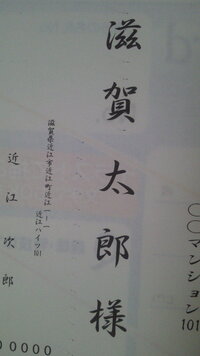 〇〇マンション101
滋賀太郎様
滋賀県近江市近江町近江1-1
近江ハイツ101
近江次郎
00000